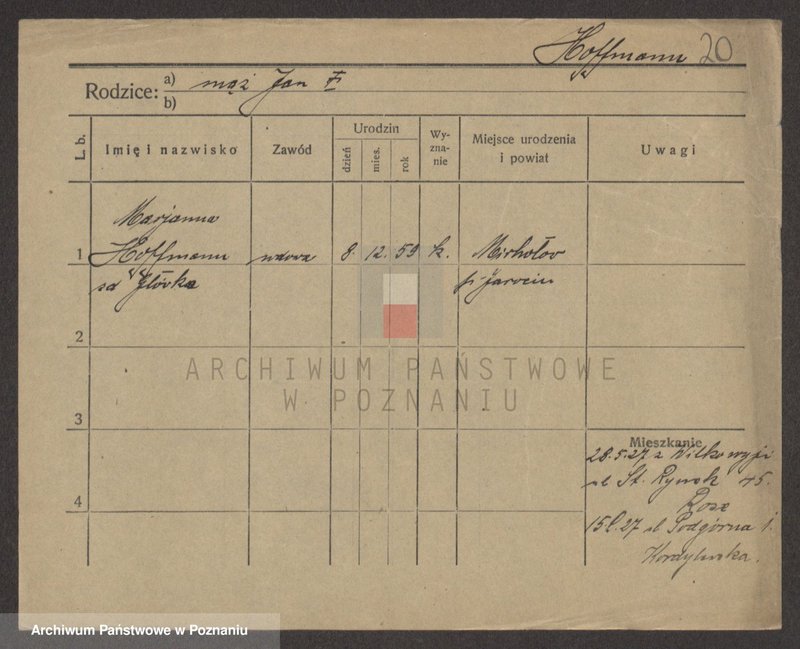 Hoffmann 20
Rodzice: a) mąż Jan F.
b)
L. b. Imię i nazwisko Zawód Urodzin dzień mies. rok Wy-zna-nie Miejsce urodzenia i powiat Uwagi
Marjanna
1 Hoffmann wdowa 8. 12. 59 k. Mirhołov
zd Główka p. Jarocin
2
ARCHIWUM PAŃSTWOWE
W POZNANIU
3
Mieszkanie
28.5.27 z Wilkowyji
ul St. Rynek 45.
4
27 ul Podgórna 1.
Archiwum Państwowe w Poznaniu